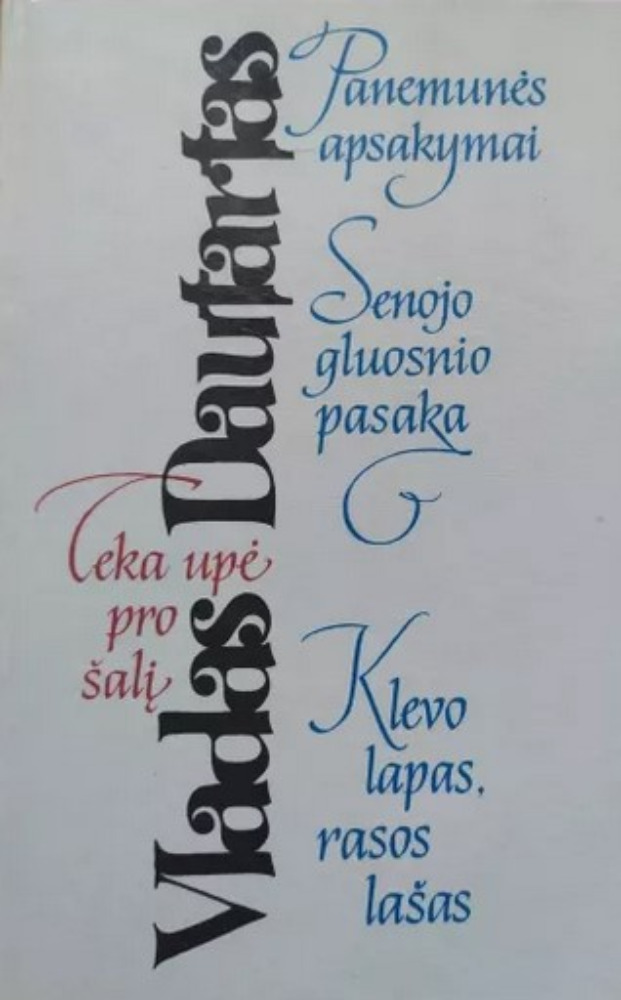 Vladas Dautartas
Teka upė
pro
šalį
Panemunės
apsakymai
Senojo
gluosnio
pasaka
Klevo
lapas,
rasos
lašas